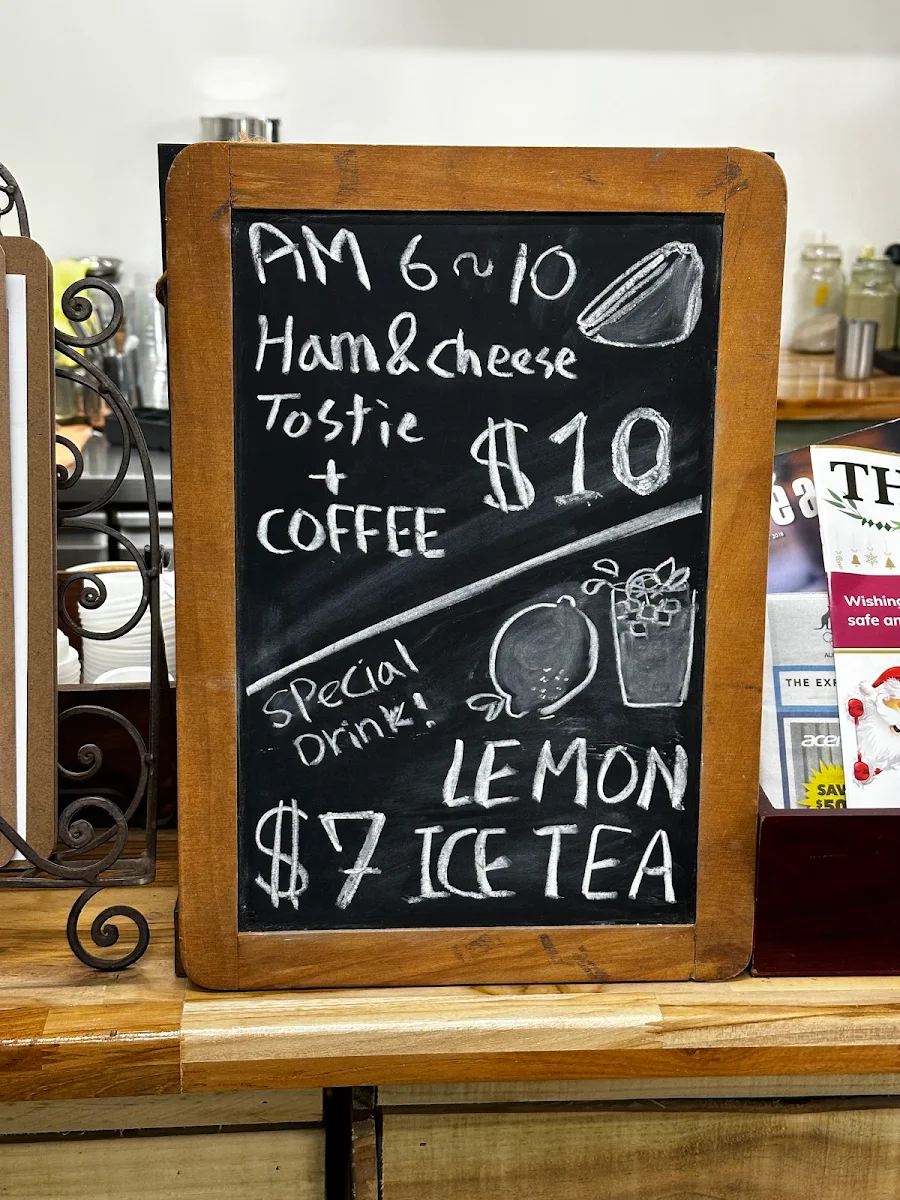 AM 6~10
Ham&cheese
Tostie
+
COFFEE
$10
special
Drink!
LEMON
$7 ICE TEA
TH
Wishing
THE EXP
acer
SAV
$50